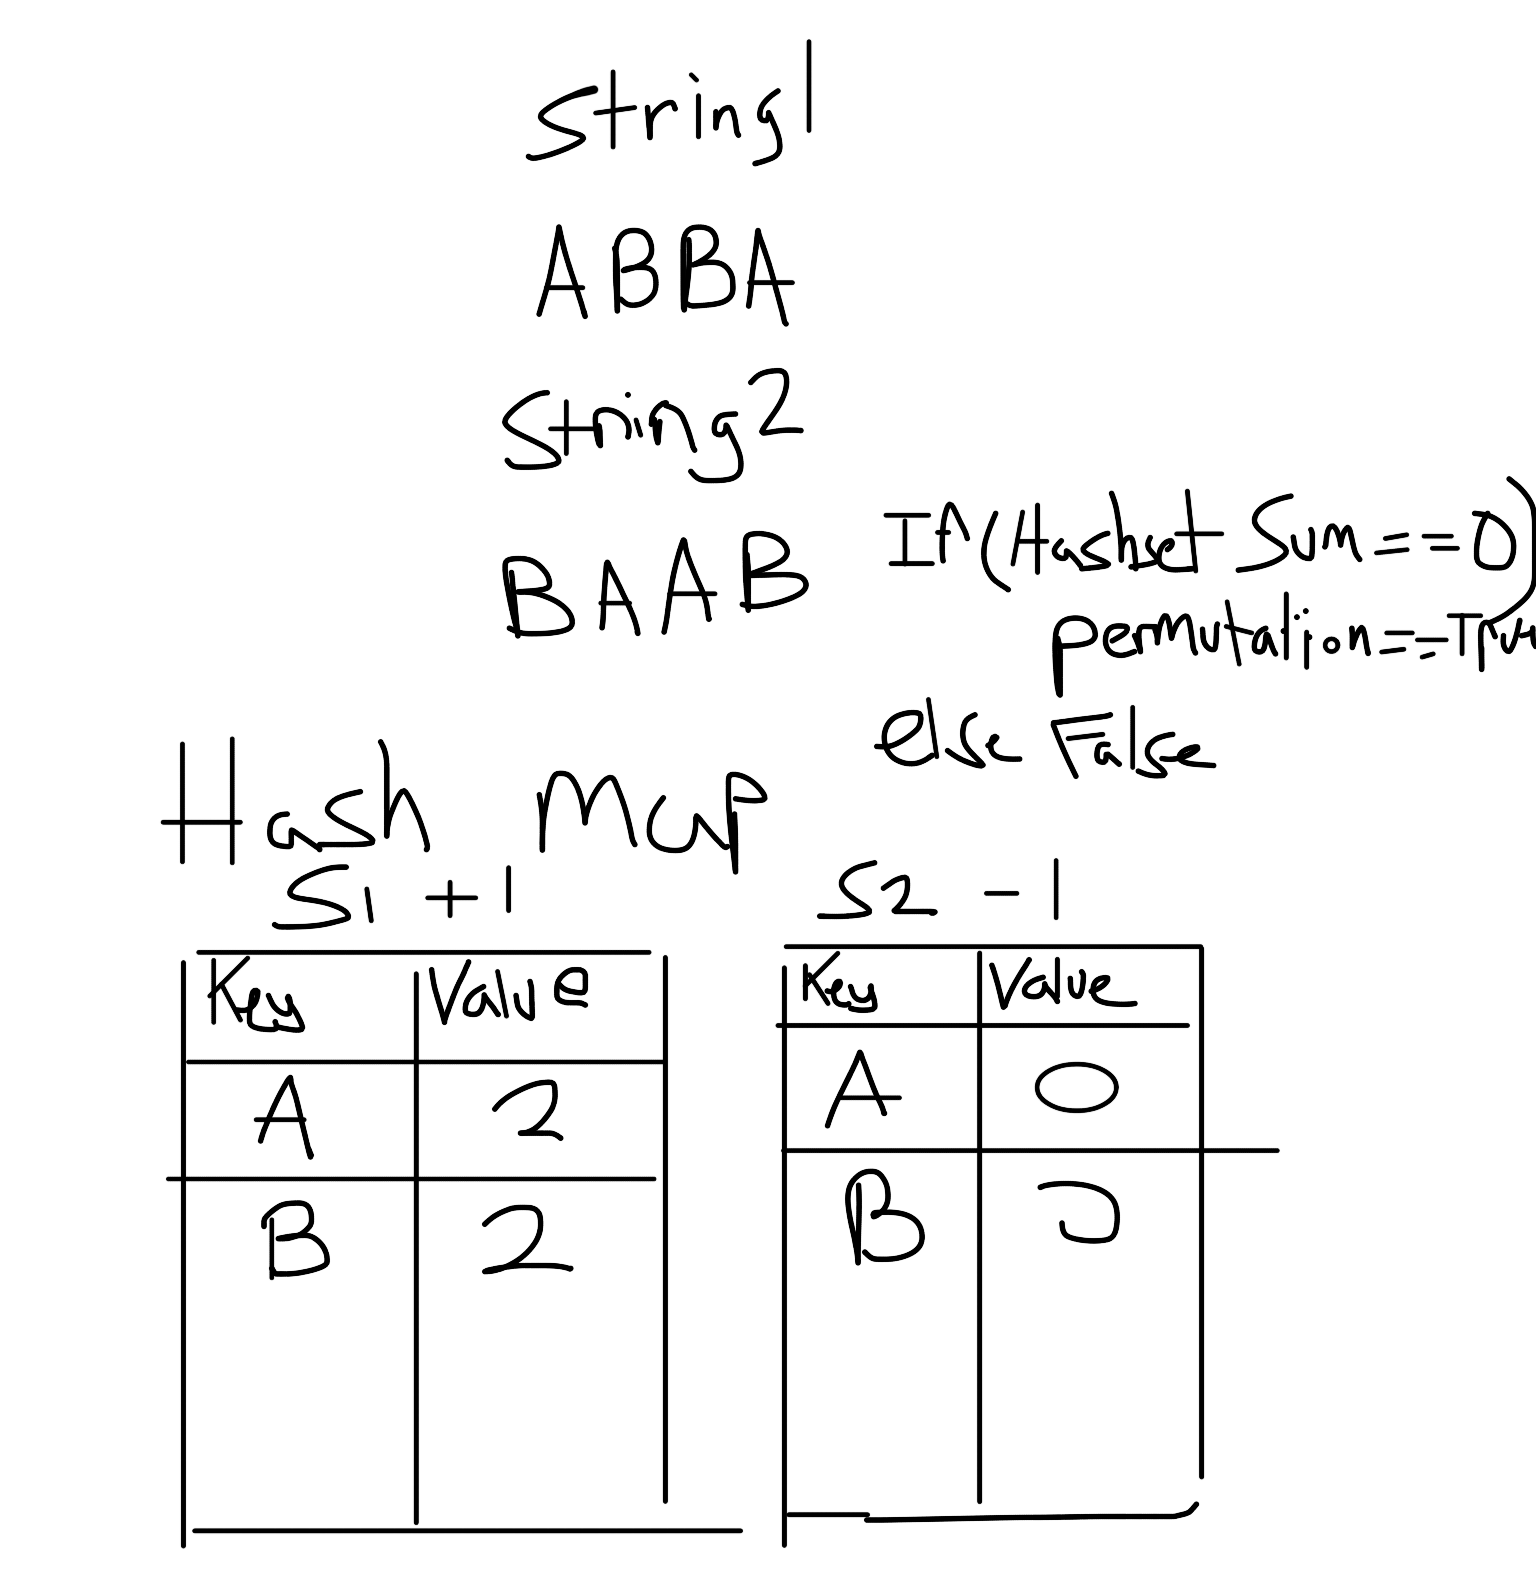 String1
ABBA
String2
BAAB
If(Hashset Sum==0)
permutation==Tru
else False
Hash Map
S1 +1
S2 -1
Key Value
A 2
B 2
Key Value
A 0
B